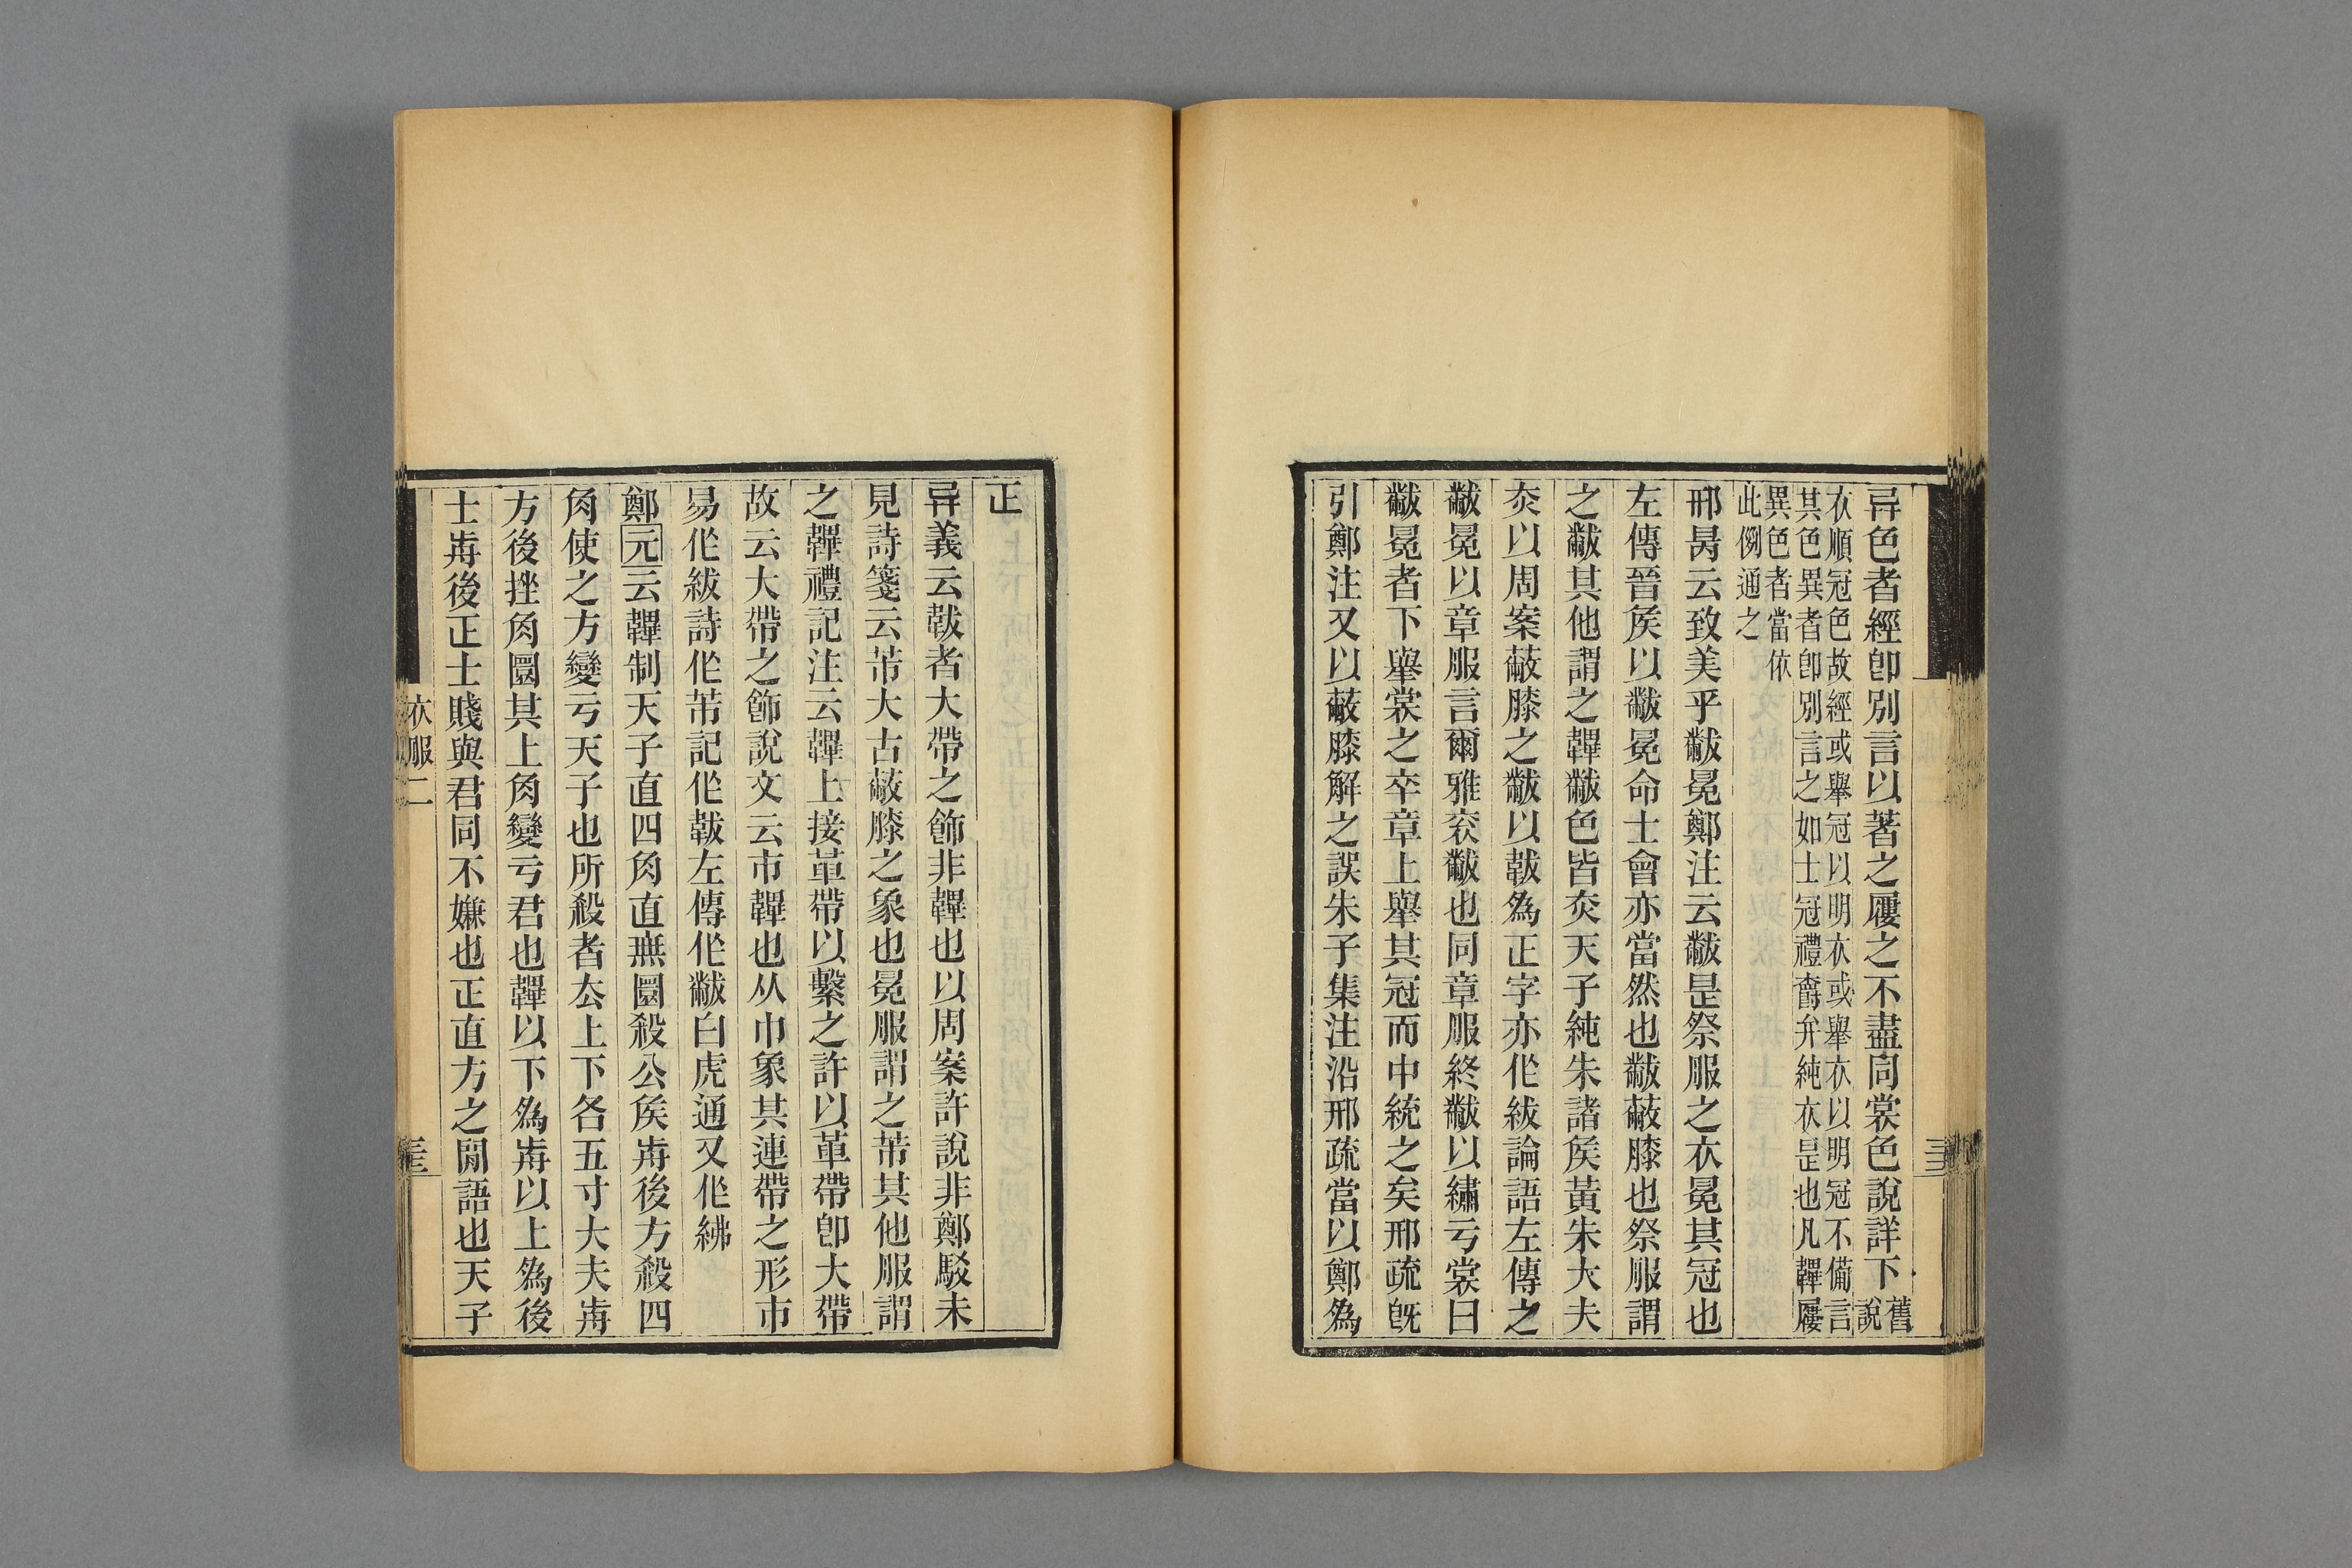 异色者經卽別言以著之屨之不盡同裳色說詳下舊說
衣順冠色故經或舉冠以明衣或舉衣以明冠不備言
其色異者卽別言之如士冠禮爵弁純衣是也凡韠屨
異色者當依
此例通之
邢昺云致美乎黻冕鄭注云黻是祭服之衣冕其冠也
左傳晉矦以黻冕命士會亦當然也黻蔽膝也祭服謂
之黻其他謂之韠黻色皆赤天子純朱諸矦黃朱大夫
赤以周案蔽膝之黻以韍爲正字亦作紱論語左傳之
黻冕以章服言爾雅袞黻也同章服終黻以繡亏裳曰
黻冕者下舉裳之卒章上舉其冠而中統之矣邢疏旣
引鄭注又以蔽膝解之誤朱子集注沿邢疏當以鄭爲
正
异義云韍者大帶之飾非韠也以周案許說非鄭駁未
見詩箋云芾大古蔽膝之象也冕服謂之芾其他服謂
之韠禮記注云韠上接革帶以繫之許以革帶卽大帶
故云大帶之飾說文云市韠也从巾象其連帶之形市
易作紱詩作芾記作韍左傳作黻白虎通又作紼
鄭元云韠制天子直四角直無圜殺公矦歬後方殺四
角使之方變亏天子也所殺者去上下各五寸大夫歬
方後挫角圜其上角變亏君也韠以下爲歬以上爲後
士歬後正士賤與君同不嫌也正直方之閒語也天子
衣服二